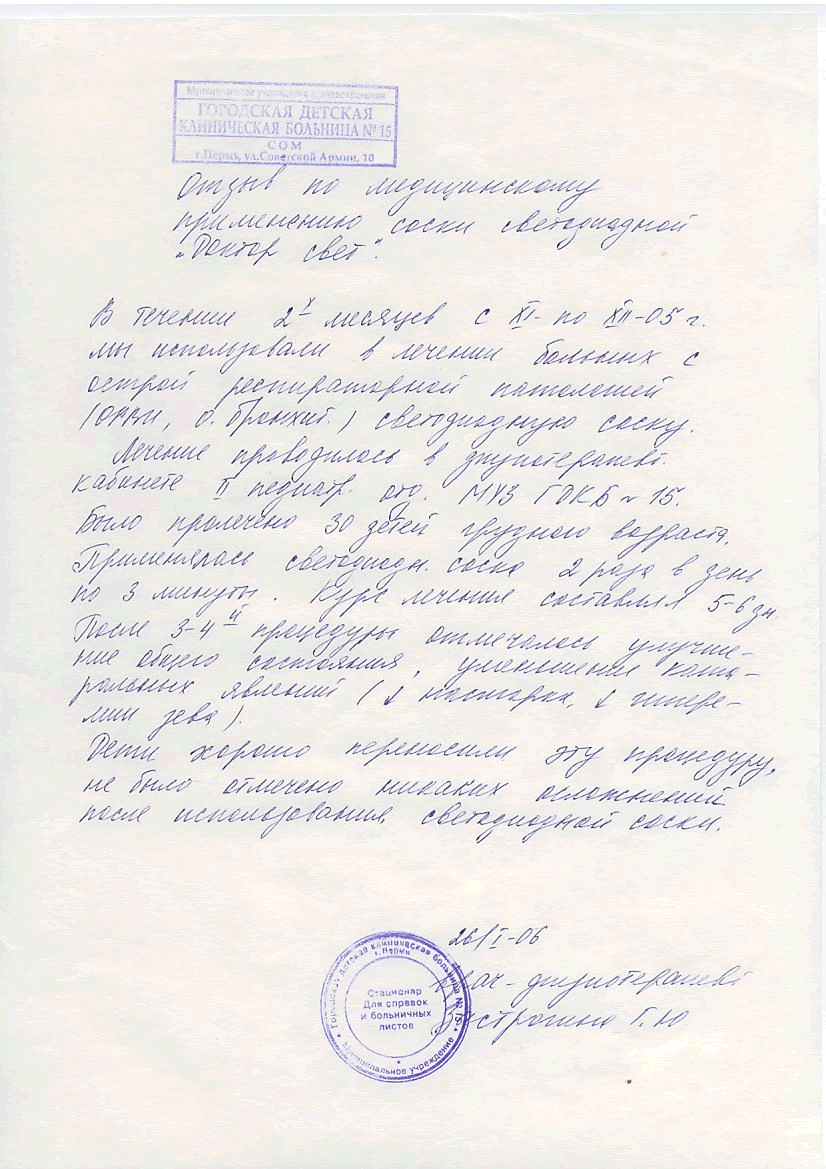 Муниципальное учреждение здравоохранения
ГОРОДСКАЯ ДЕТСКАЯ
КЛИНИЧЕСКАЯ БОЛЬНИЦА № 15
СОМ
г.Пермь, ул.Советской Армии, 10
Отзыв по медицинскому
применению соски светодиодной
„Доктор свет".
В течении 2х месяцев с XI- по XII-05 г.
мы использовали в лечении больных с
острой респираторной патологией
(ОРВИ, о. бронхит.) светодиодную соску.
Лечение проводилось в физиотерапевт.
кабинете II педиатр. отд. МУЗ ГДКБ № 15.
Было пролечено 30 детей грудного возраста.
Применялась светодиодн. соска 2 раза в день
по 3 минуты. Курс лечения составлял 5-6 дн.
После 3-4й процедуры отмечалось улучше-
ние общего состояния, уменьшение ката-
ральных явлений (↓ насморка, ↓ гипере-
мии зева).
Дети хорошо переносили эту процедуру,
не было отмечено никаких осложнений
после использования светодиодной соски.
26/I-06
Врач-физиотерапевт
Г.Ю.
Городская детская клиническая больница № 15
г.Пермь
Стационар
Для справок
и больничных
листов
Муниципальное учреждение